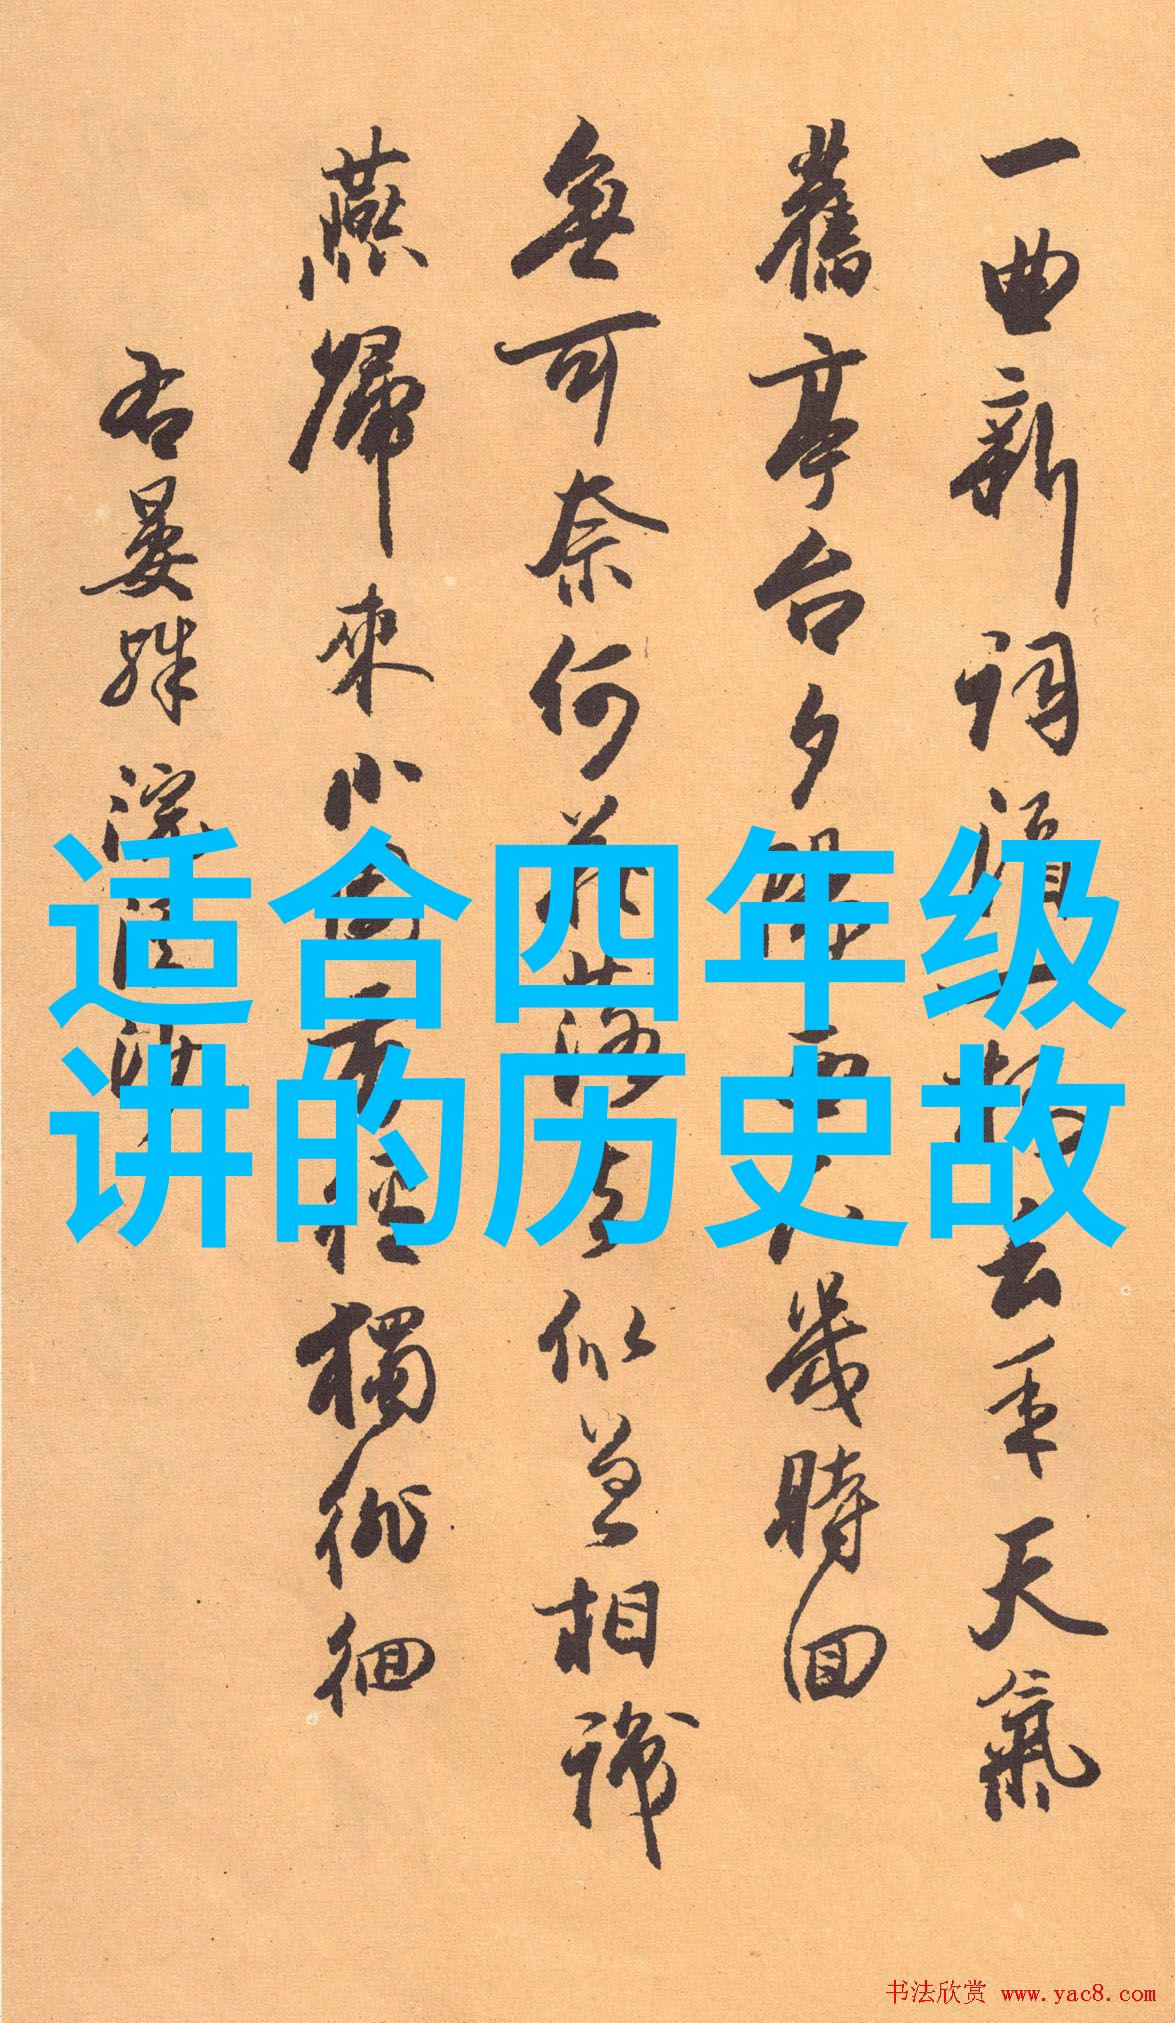 一曲新詞酒一杯去年天氣
舊亭台夕陽西下幾時回
無可奈何花落去似曾相識
燕歸來小園香徑獨徘徊
右晏殊浣溪沙
适合四年级
讲的历史故
书法欣赏 www.yac8.com